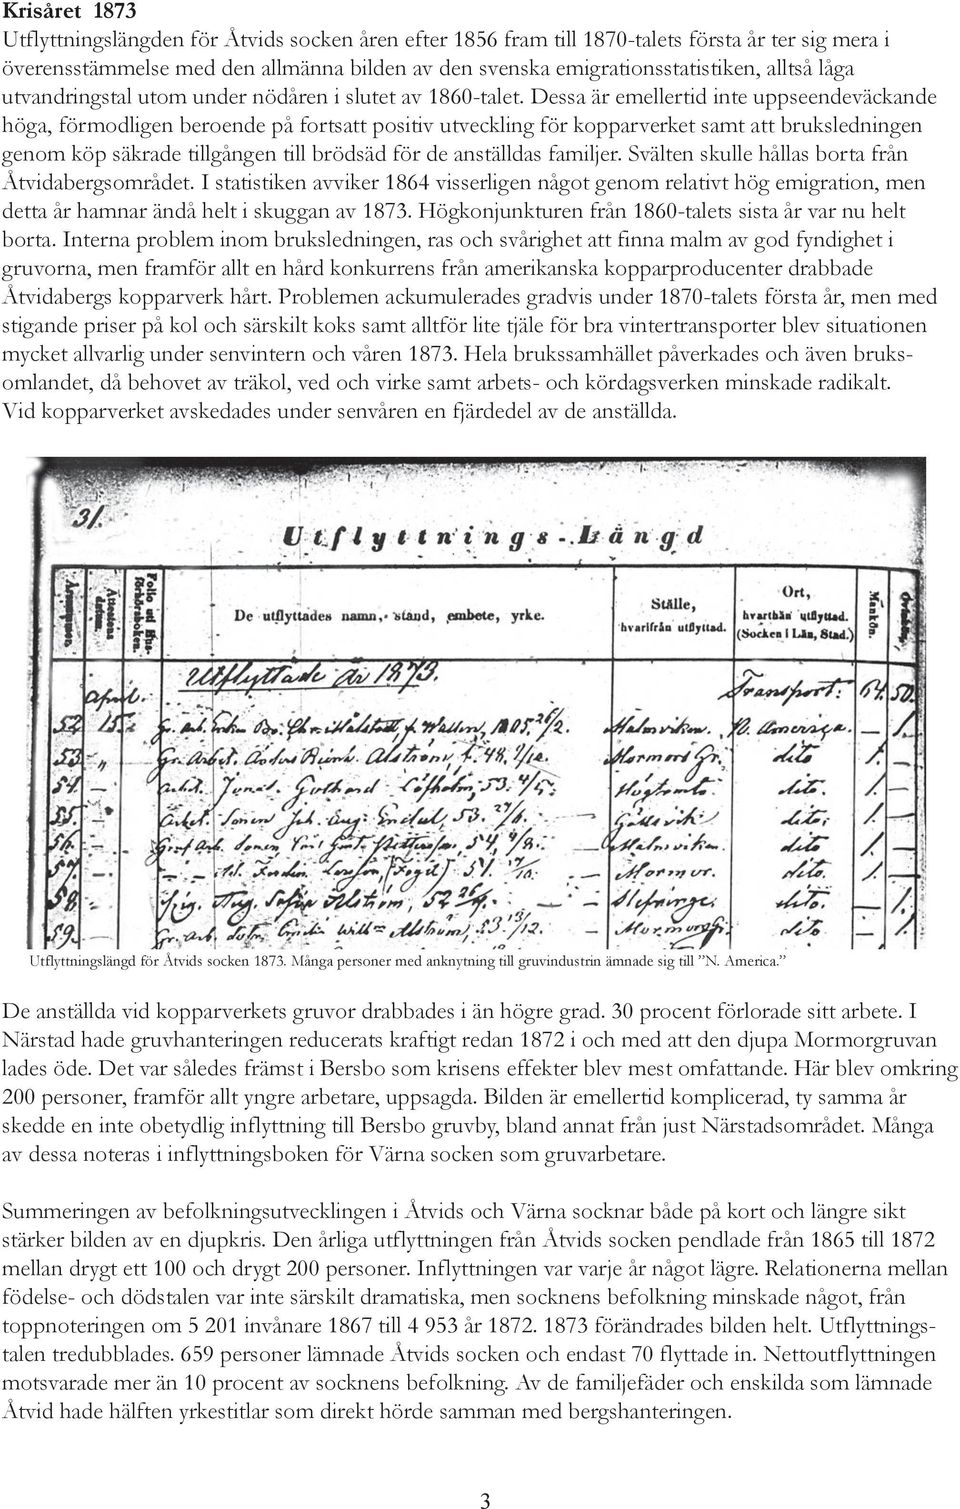 Krisåret 1873
Utflyttningslängden för Åtvids socken åren efter 1856 fram till 1870-talets första år ter sig mera i
överensstämmelse med den allmänna bilden av den svenska emigrationsstatistiken, alltså låga
utvandringstal utom under nödåren i slutet av 1860-talet. Dessa är emellertid inte uppseendeväckande
höga, förmodligen beroende på fortsatt positiv utveckling för kopparverket samt att bruksledningen
genom köp säkrade tillgången till brödsäd för de anställdas familjer. Svälten skulle hållas borta från
Åtvidabergsområdet. I statistiken avviker 1864 visserligen något genom relativt hög emigration, men
detta år hamnar ändå helt i skuggan av 1873. Högkonjunkturen från 1860-talets sista år var nu helt
borta. Interna problem inom bruksledningen, ras och svårighet att finna malm av god fyndighet i
gruvorna, men framför allt en hård konkurrens från amerikanska kopparproducenter drabbade
Åtvidabergs kopparverk hårt. Problemen ackumulerades gradvis under 1870-talets första år, men med
stigande priser på kol och särskilt koks samt alltför lite tjäle för bra vintertransporter blev situationen
mycket allvarlig under senvintern och våren 1873. Hela brukssamhället påverkades och även bruks-
omlandet, då behovet av träkol, ved och virke samt arbets- och kördagsverken minskade radikalt.
Vid kopparverket avskedades under senvåren en fjärdedel av de anställda.
31.
Utflyttnings-Längd
Folio uti Hus-
förhörsboken.
De utflyttades namn, stånd, embete, yrke.
Ställe,
hvarifrån utflyttad.
Ort,
hvarthän utflyttad.
(Socken i Län, Stad.)
Mankön.
Utflyttade År 1873.
Transport: 64. 50.
April.
52. 15. Malmviken. N. America. 1.
53. " Gr. Arbet. Anders Alström, f. 48. Mormors Gr. dito 1.
54. Arbet. Gothard Löfholm, 53. 4/5. Högtomta dito. 1.
55. Arbet. Sonen Joh. Aug. 53. Götlsvik dito. 1.
56. Sonen 54, Malmviken dito 1.
57. (Fogel) 51. Mormor. dito. 1.
58. Pig. Aug. Sofia Alström, 52 Slefringe. dito. 1.
59. Gr. Arb. Alström; 53 Mormorsgr. dito.
Utflyttningslängd för Åtvids socken 1873. Många personer med anknytning till gruvindustrin ämnade sig till ”N. America.”
De anställda vid kopparverkets gruvor drabbades i än högre grad. 30 procent förlorade sitt arbete. I
Närstad hade gruvhanteringen reducerats kraftigt redan 1872 i och med att den djupa Mormorgruvan
lades öde. Det var således främst i Bersbo som krisens effekter blev mest omfattande. Här blev omkring
200 personer, framför allt yngre arbetare, uppsagda. Bilden är emellertid komplicerad, ty samma år
skedde en inte obetydlig inflyttning till Bersbo gruvby, bland annat från just Närstadsområdet. Många
av dessa noteras i inflyttningsboken för Värna socken som gruvarbetare.
Summeringen av befolkningsutvecklingen i Åtvids och Värna socknar både på kort och längre sikt
stärker bilden av en djupkris. Den årliga utflyttningen från Åtvids socken pendlade från 1865 till 1872
mellan drygt ett 100 och drygt 200 personer. Inflyttningen var varje år något lägre. Relationerna mellan
födelse- och dödstalen var inte särskilt dramatiska, men socknens befolkning minskade något, från
toppnoteringen om 5 201 invånare 1867 till 4 953 år 1872. 1873 förändrades bilden helt. Utflyttnings-
talen tredubblades. 659 personer lämnade Åtvids socken och endast 70 flyttade in. Nettoutflyttningen
motsvarade mer än 10 procent av socknens befolkning. Av de familjefäder och enskilda som lämnade
Åtvid hade hälften yrkestitlar som direkt hörde samman med bergshanteringen.
3